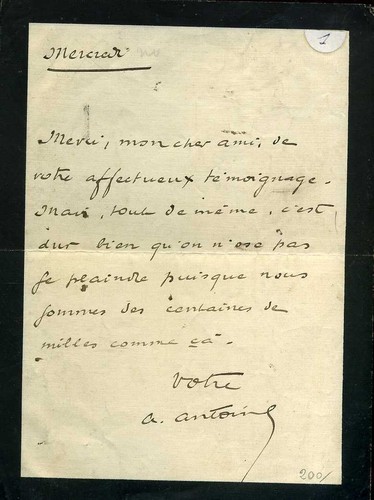 Mercredi
1
Merci, mon cher ami, de
votre affectueux témoignage.
Mais, tout de même, c'est
dur bien qu'on n'ose pas
se plaindre puisque nous
sommes des centaines de
milles comme ça.
Votre
a. antoine
200/